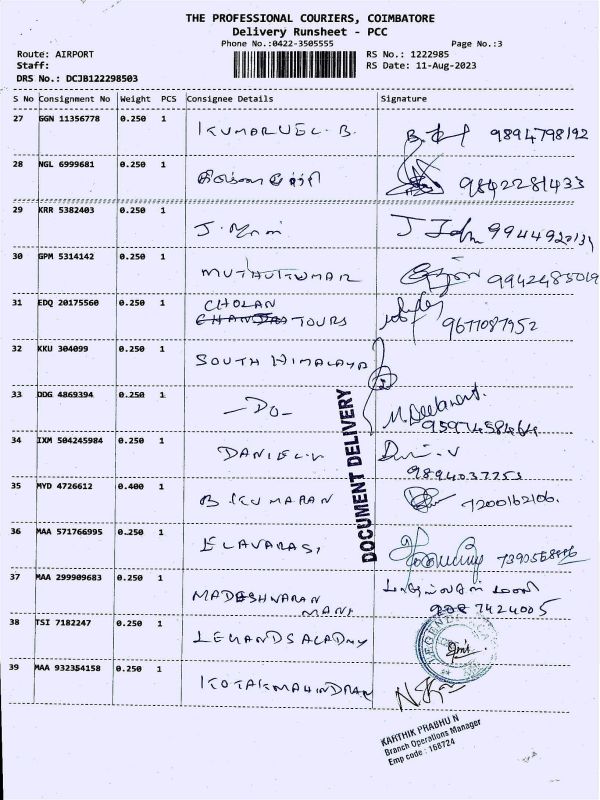 THE PROFESSIONAL COURIERS, COIMBATORE
Delivery Runsheet - PCC
Phone No.:0422-3505555 Page No.:3
Route: AIRPORT RS No.: 1222985
Staff: RS Date: 11-Aug-2023
DRS No.: DCJB122298503
S No Consignment No Weight PCS Consignee Details Signature
27 GGN 11356778 0.250 1 KUMARVEL. B. 9894798192
28 NGL 6999681 0.250 1 9842281433
29 KRR 5382403 0.250 1 J.
30 GPM 5314142 0.250 1 MUTHUKUMAR 9942485019
31 EDQ 20175560 0.250 1 CHOLAN
TOURS 9677087952
32 KKU 304099 0.250 1 SOUTH HIMALAYA
33 DDG 4869394 0.250 1 -DO-
34 IXM 504245984 0.250 1 DANIEL.V
9894037253
35 MYD 4726612 0.400 1 B KUMARAN 7200162106.
36 MAA 571766995 0.250 1 ELAVARASI
37 MAA 299909683 0.250 1 MADESHWARAN
MANI 7424005
38 TSI 7182247 0.250 1
39 MAA 932354158 0.250 1 KOTAKMAHINDRAH
DOCUMENT DELIVERY
KARTHIK PRABHU N
Branch Operations Manager
Emp code : 168724